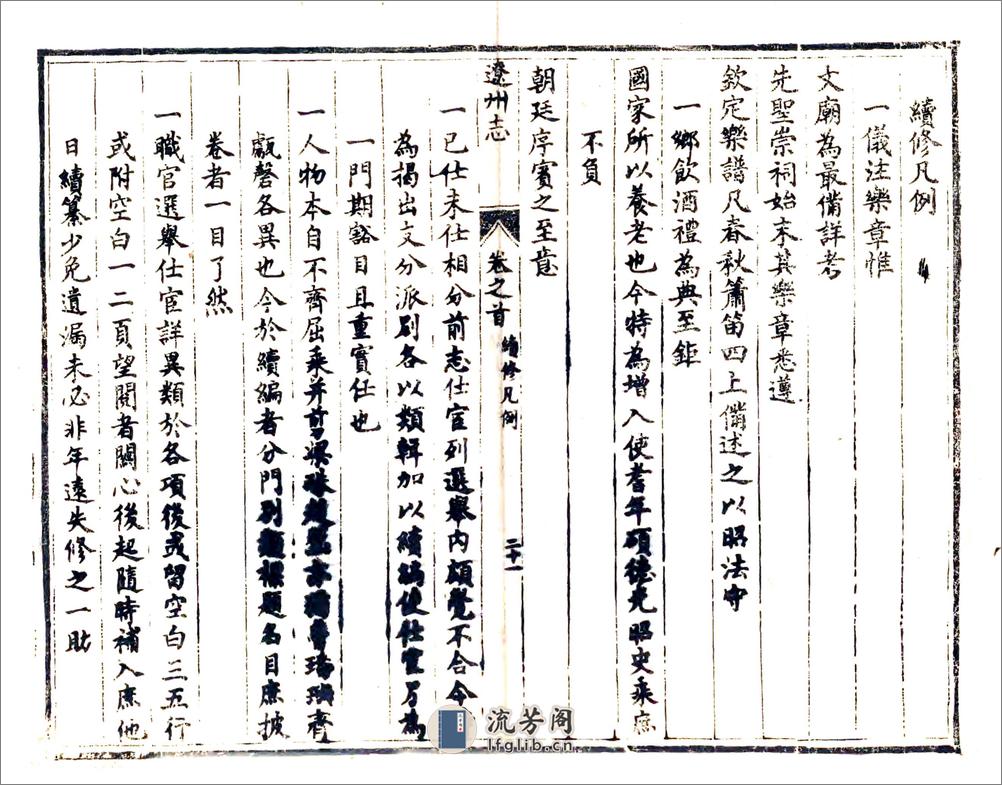 續修凡例
一儀注樂章惟
文廟為最備詳考
先聖崇祠始末其樂章悉遵
欽定樂譜凡春秋簫笛四上備述之以昭法守
一鄉飲酒禮為典至鉅
國家所以養老也今特為增入使耆年碩德光昭史乘庶
不負
朝廷序賓之至意
遼州志
卷之首
續修凡例
二十一
一已仕未仕相分前志仕宦列選舉內頗覺不合今
為揭出支分派別各以類輯加以續編使仕宦另為
一門期豁目且重實任也
一人物本自不齊屈乘并
齊
觀磬各異也今於續編者分門別類標題名目庶披
卷者一目了然
一職官選舉仕宦詳異類於各項後或留空白三五行
或附空白一二頁望閱者關心後起隨時補入庶他
日續纂少免遺漏未必非年遠失修之一助
流芳阁
lfglib.cn